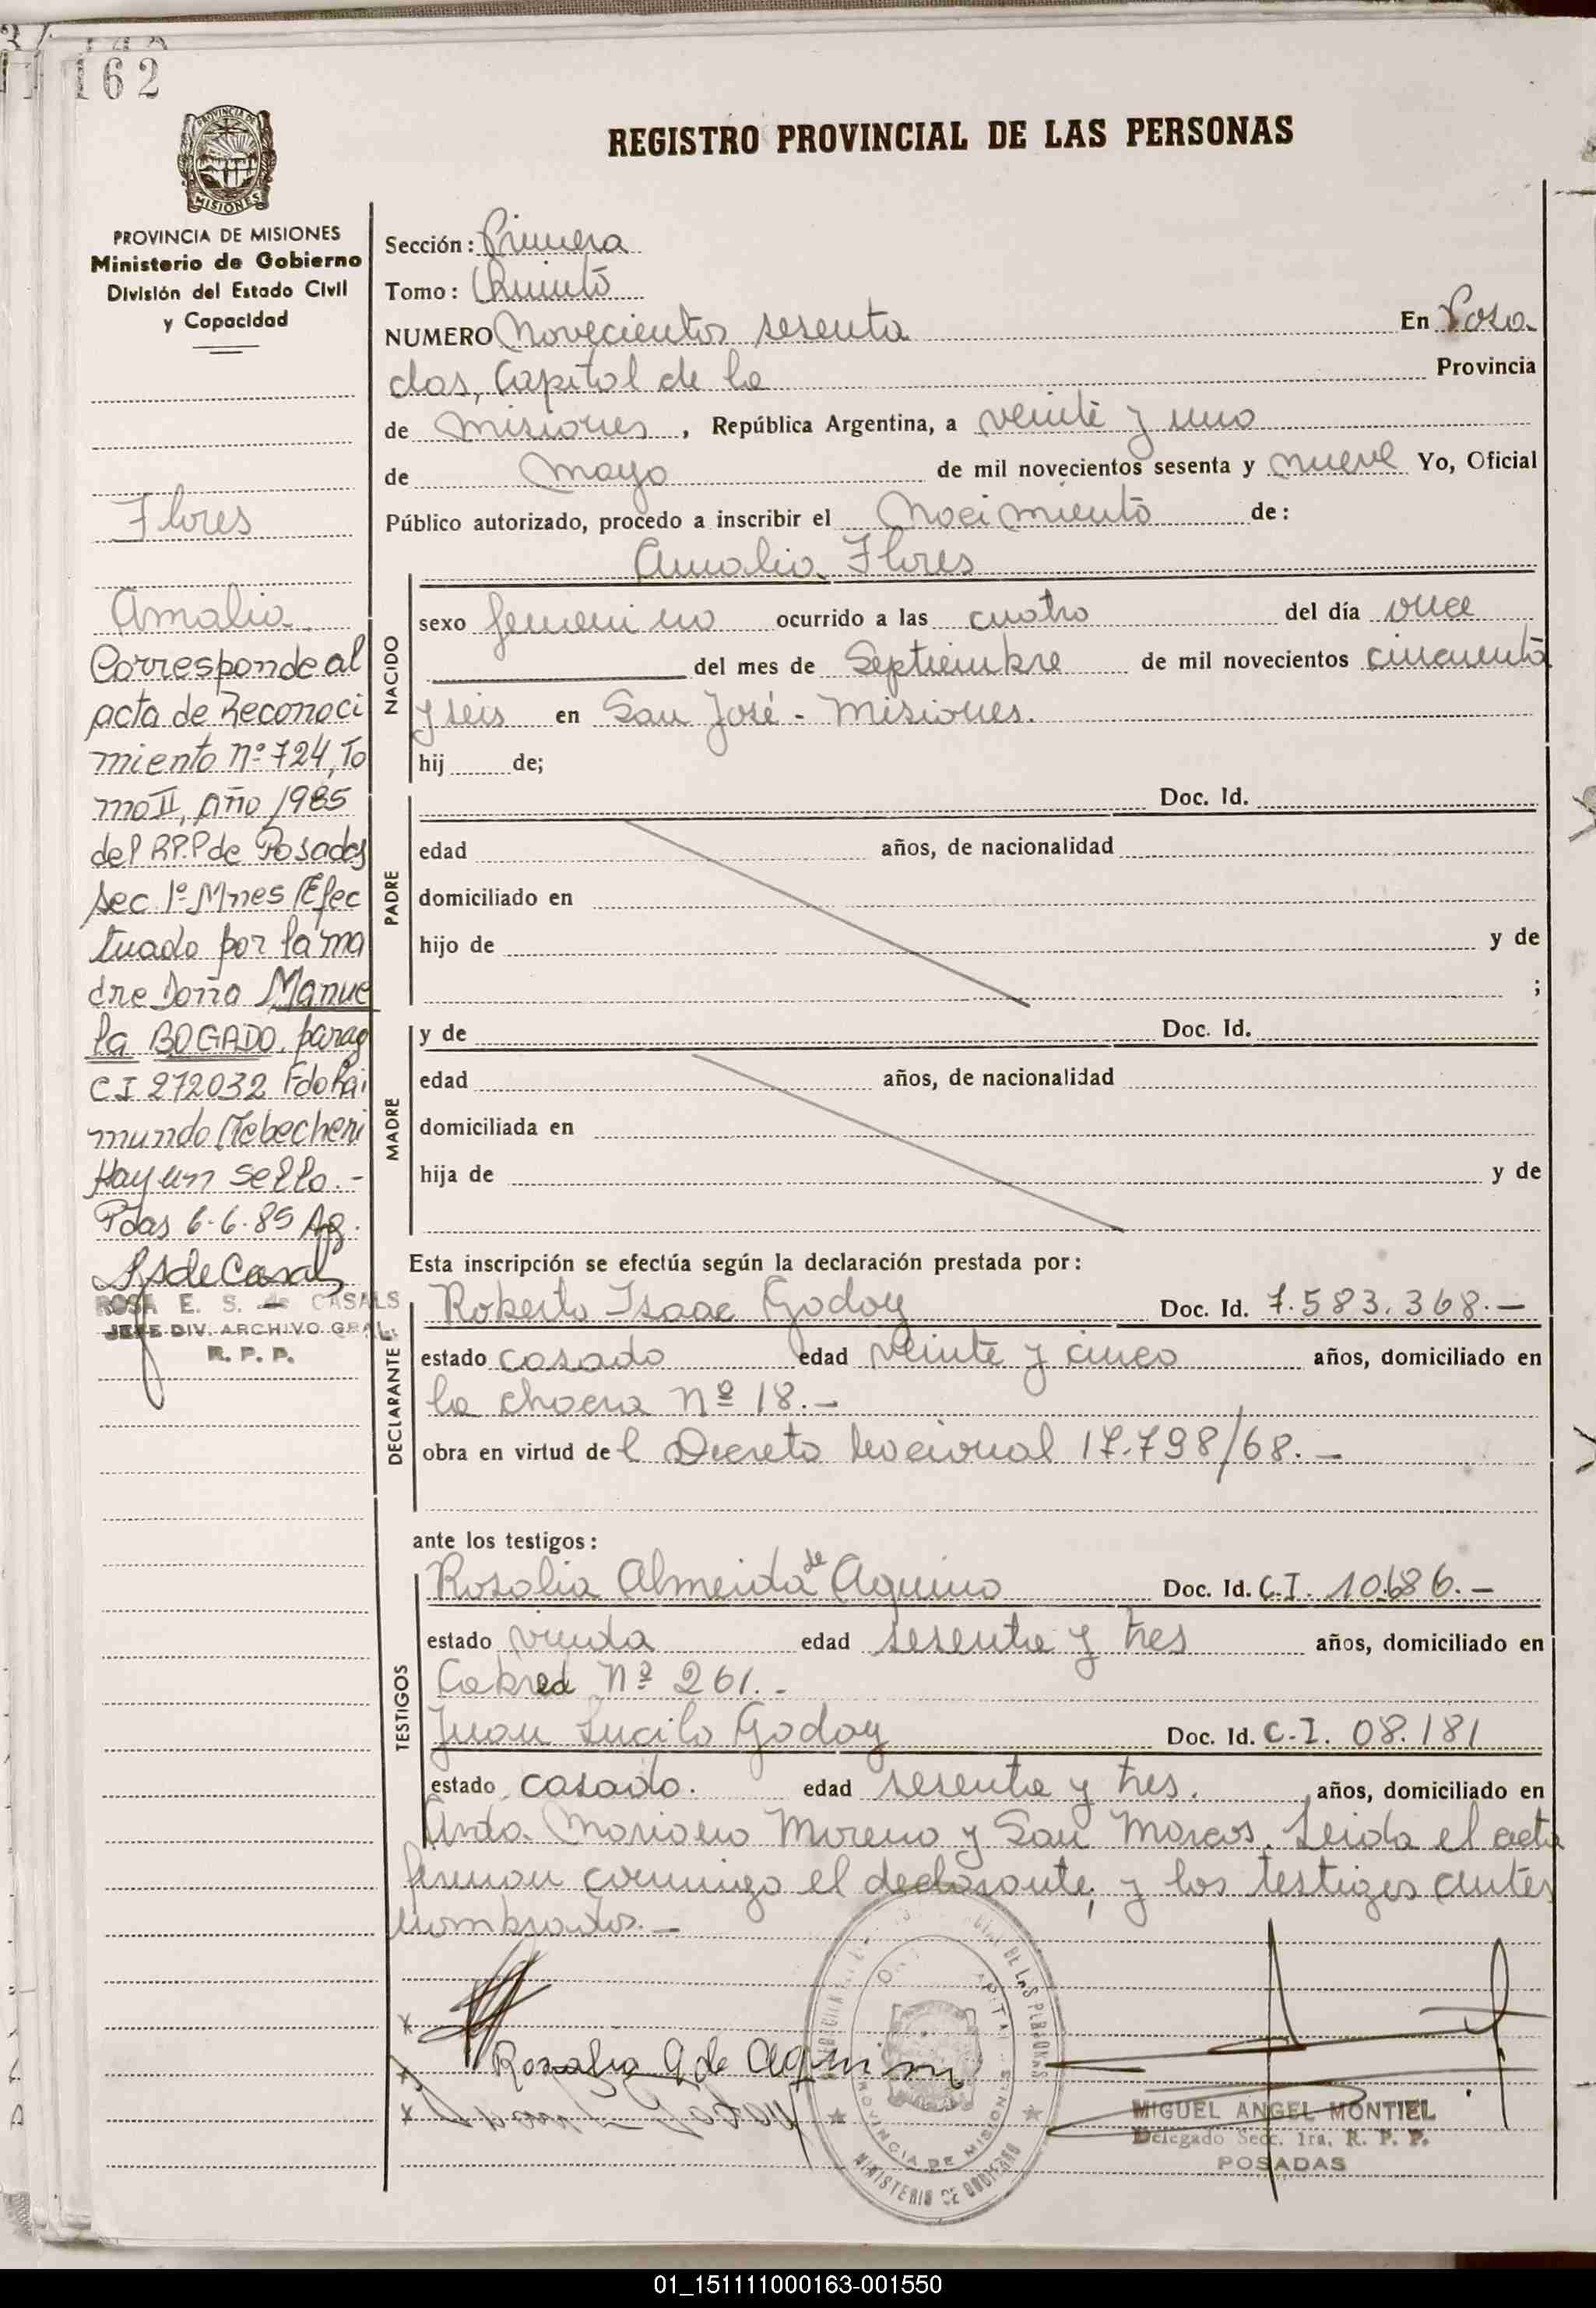 162
REGISTRO PROVINCIAL DE LAS PERSONAS
PROVINCIA DE MISIONES
Ministerio de Gobierno
División del Estado Civil
y Capacidad
Flores
Amalia.
Corresponde al
acta de Reconoci
miento Nº 724, To
mo II, Año 1985
del R.P.P de Posadas
Sec 1º Mnes Efec
tuado por la ma
dre Doña Manue
la BOGADO, parag
C I 272032 Fdo Rai
mundo
Hay un sello.-
Pdas 6-6-85
ROSA E. S. de CASALS
JEFE DIV. ARCHIVO GRAL.
R. P. P.
Sección: Primera
Tomo: Quinto
NUMERO Novecientos sesenta En Posa
das, Capital de la Provincia
de Misiones, República Argentina, a veinte y uno
de Mayo de mil novecientos sesenta y nueve Yo, Oficial
Público autorizado, procedo a inscribir el Nacimiento de:
Amalia Flores
NACIDO
sexo femenino ocurrido a las cuatro del día once
del mes de Septiembre de mil novecientos cincuenta
y seis en San José - Misiones.
hij de;
PADRE
Doc. Id.
edad años, de nacionalidad
domiciliado en
hijo de y de
;
MADRE
y de Doc. Id.
edad años, de nacionalidad
domiciliada en
hija de y de
Esta inscripción se efectúa según la declaración prestada por:
DECLARANTE
Roberto Isaac Godoy Doc. Id. 7.583.368.-
estado casado edad veinte y cinco años, domiciliado en
la chacra Nº 18.-
obra en virtud del Decreto Nacional 17.798/68.-
ante los testigos:
TESTIGOS
Rosalia Almeida de Aquino Doc. Id. C.I. 10.686.-
estado viuda edad sesenta y tres años, domiciliado en
Cabred Nº 261.-
Juan Lucilo Godoy Doc. Id. C.I. 08.181
estado casado. edad sesenta y tres. años, domiciliado en
Avda. Mariano Moreno y San Marcos. Leida el acta
firman conmigo el declarante, y los testigos antes
nombrados.-
Rosalia A de Aquino
MINISTERIO DE GOBIERNO
PROVINCIA DE MISIONES
MIGUEL ANGEL MONTIEL
Delegado Secc. 1ra. R. P. P.
POSADAS
01_151111000163-001550